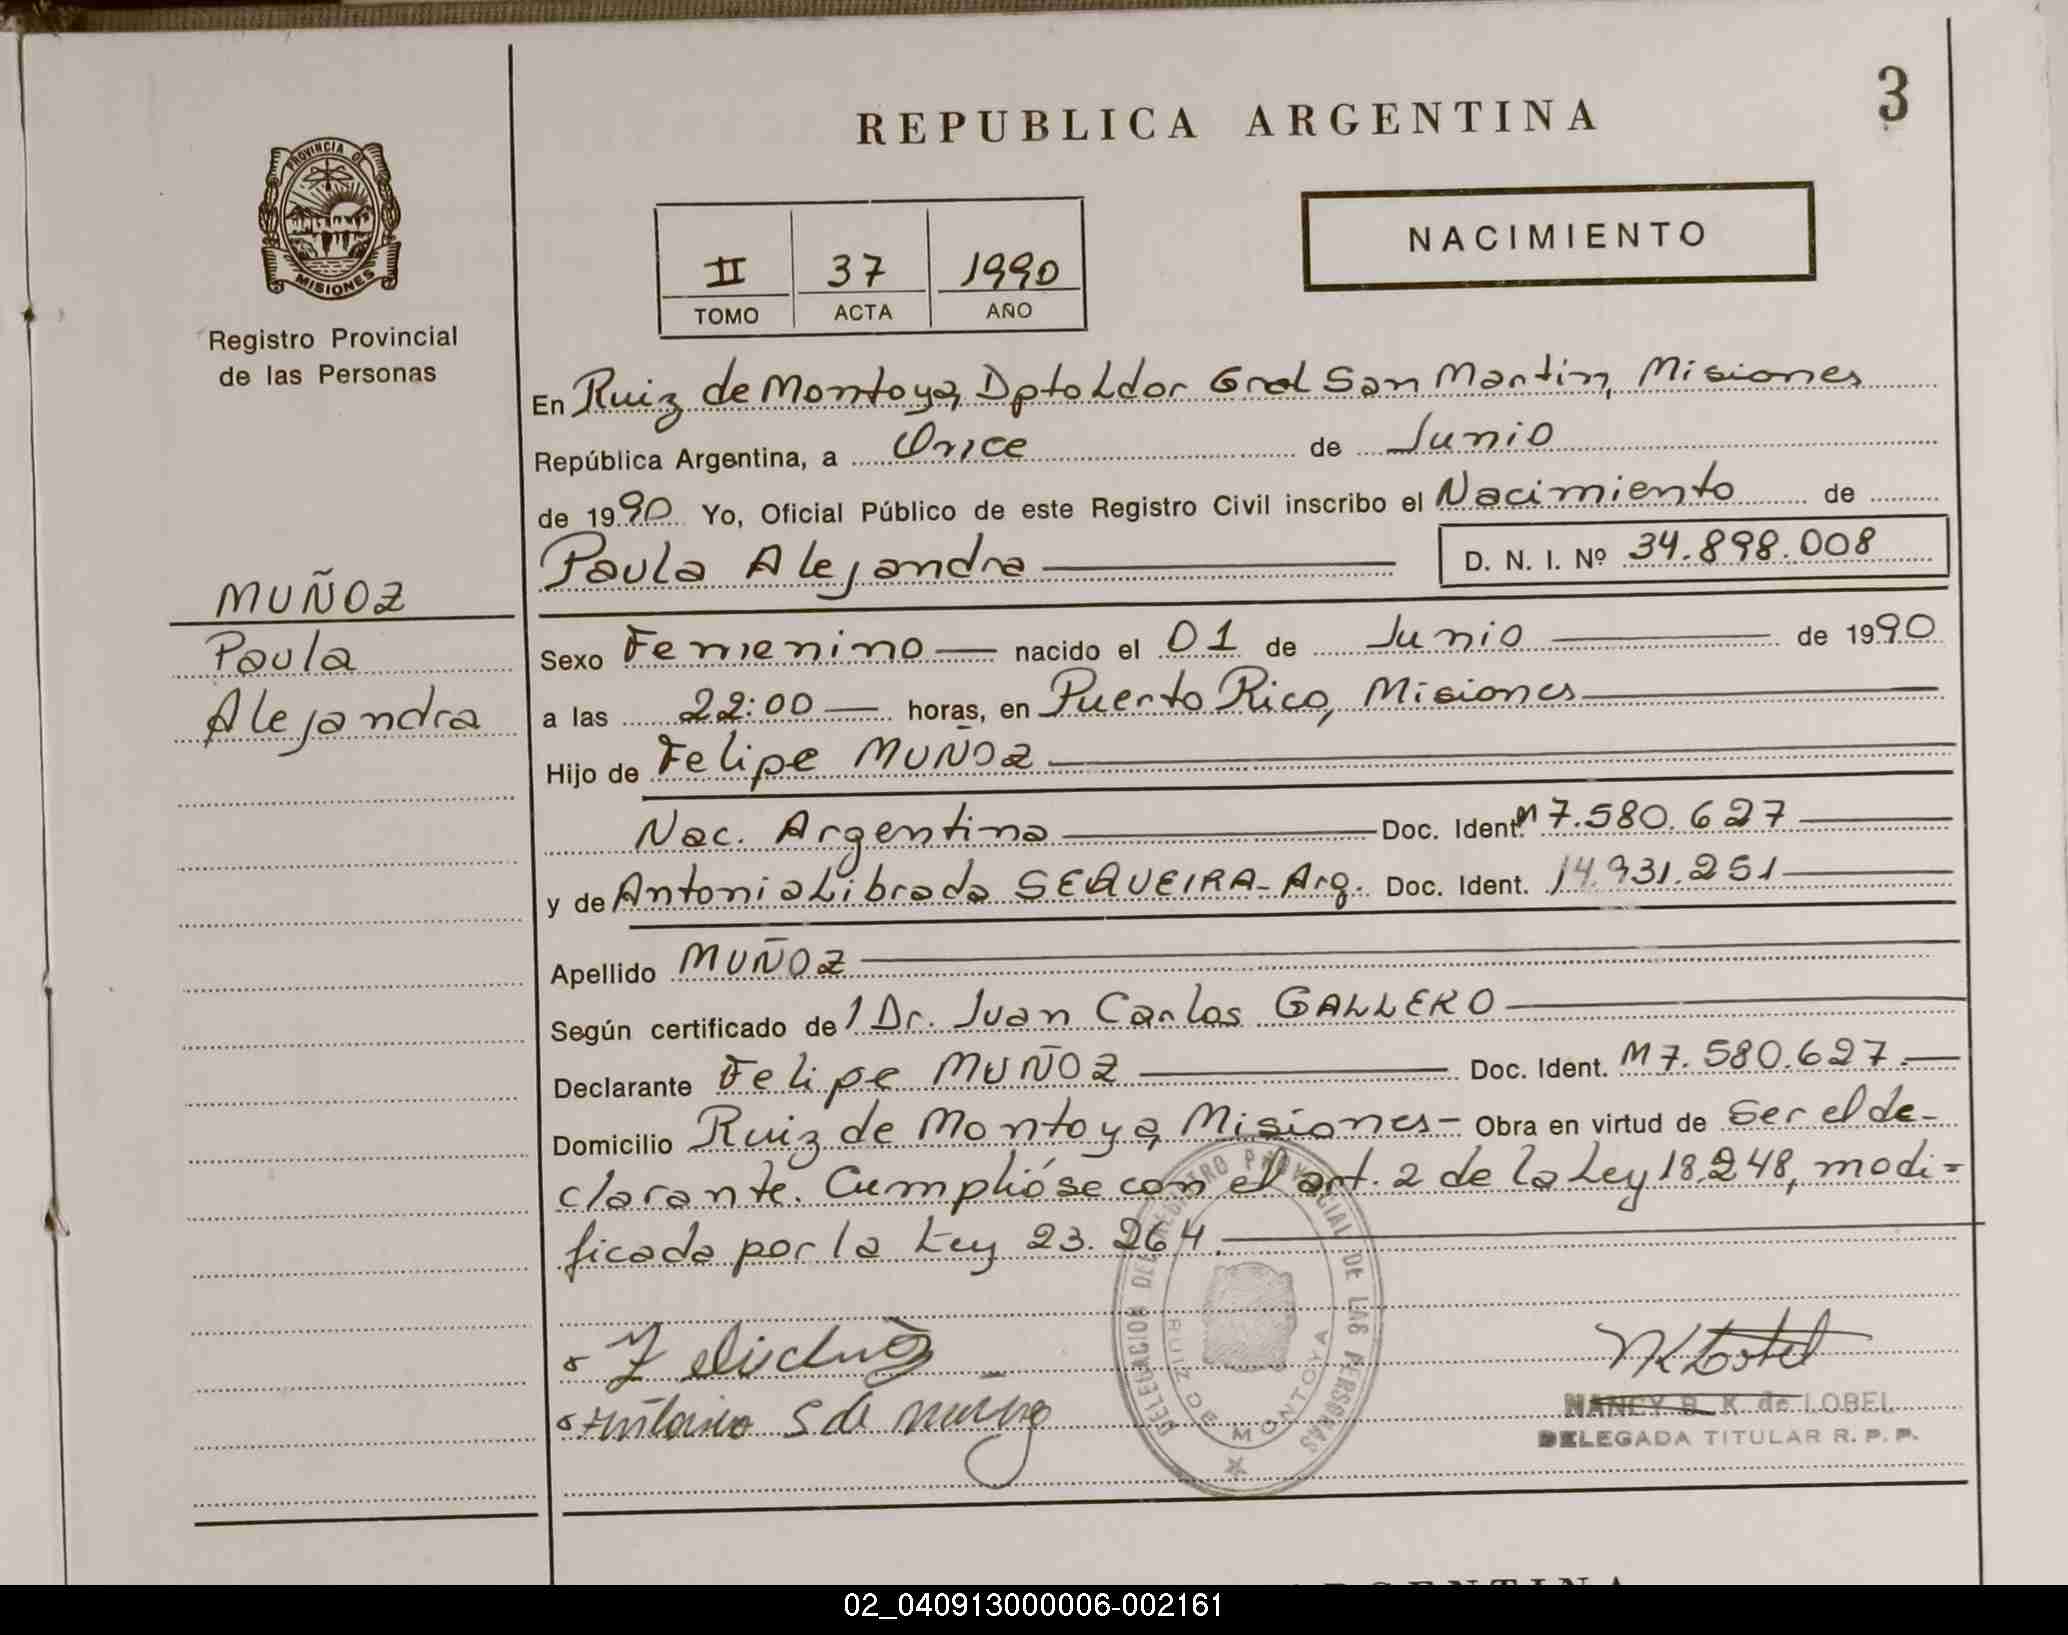 REPUBLICA ARGENTINA
3
PROVINCIA DE
MISIONES
Registro Provincial
de las Personas
NACIMIENTO
II 37 1990
TOMO ACTA AÑO
En Ruiz de Montoya, Dpto Ldor Gral San Martin, Misiones
República Argentina, a Once de Junio
de 1990 Yo, Oficial Público de este Registro Civil inscribo el Nacimiento de
Paula Alejandra
D. N. I. Nº 34.898.008
MUÑOZ
Paula
Alejandra
Sexo Femenino nacido el 01 de Junio de 1990
a las 22:00 horas, en Puerto Rico, Misiones
Hijo de Felipe MUÑOZ
Nac. Argentina Doc. Ident. M 7.580.627
y de Antonia Librada SEQUEIRA - Arg. Doc. Ident. 14.931.251
Apellido MUÑOZ
Según certificado de l Dr. Juan Carlos GALLERO
Declarante Felipe MUÑOZ Doc. Ident. M 7.580.627.
Domicilio Ruiz de Montoya, Misiones - Obra en virtud de Ser el de-
clarante. Cumplióse con el art. 2 de la Ley 18.248, modi=
ficada por la Ley 23.264.
DELEGACION DEL REGISTRO PROVINCIAL DE LAS PERSONAS
RUIZ DE MONTOYA
S de
NANCY B. K. de LOBEL
DELEGADA TITULAR R. P. P.
ARGENTINA
02_040913000006-002161